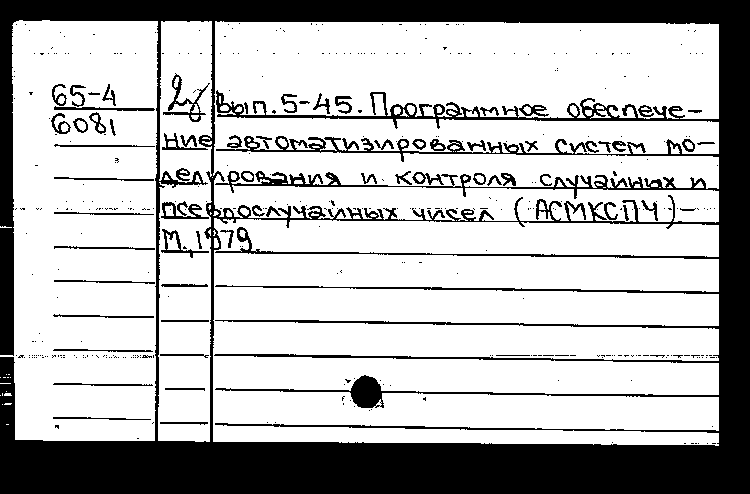 65-4
6081
Вып. 5-45. Программное обеспече-
ние автоматизированных систем мо-
делирования и контроля случайных и
псевдослучайных чисел (АСМКСПЧ)-
М., 1979.